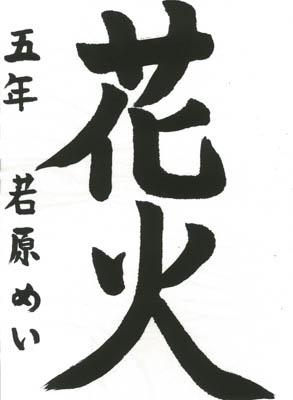 花火
五年 若原めい